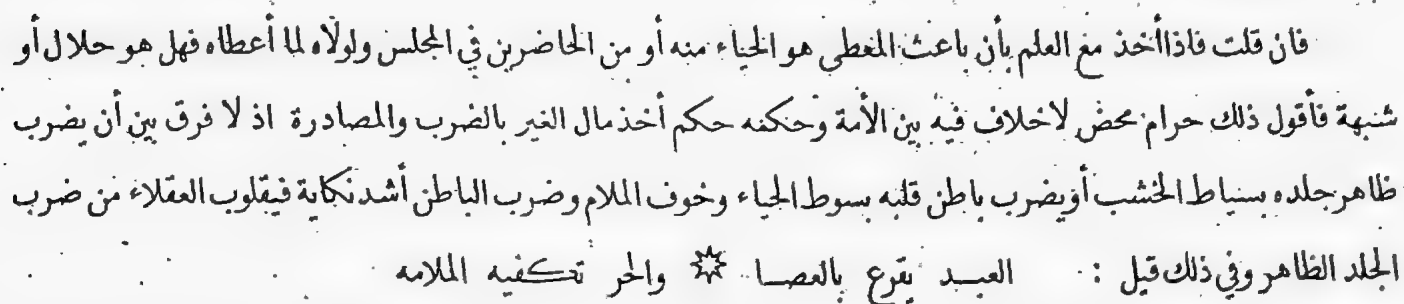 فان قلت فاذا أخذ مع العلم بأن باعث المعطى هو الحياء منه أو من الحاضرين في المجلس ولولاه لما أعطاه فهل هو حلال أو
شبهة فأقول ذلك حرام محض لاخلاف فيه بين الأمة وحكمه حكم أخذ مال الغير بالضرب والمصادرة اذ لا فرق بين أن يضرب
ظاهر جلده بسياط الخشب أو يضرب باطن قلبه بسوط الحياء وخوف الملام وضرب الباطن أشد نكاية فيقلوب العقلاء من ضرب
الجلد الظاهر وفي ذلك قيل : العبد يقرع بالعصا ۞ والحر تكفيه الملامه